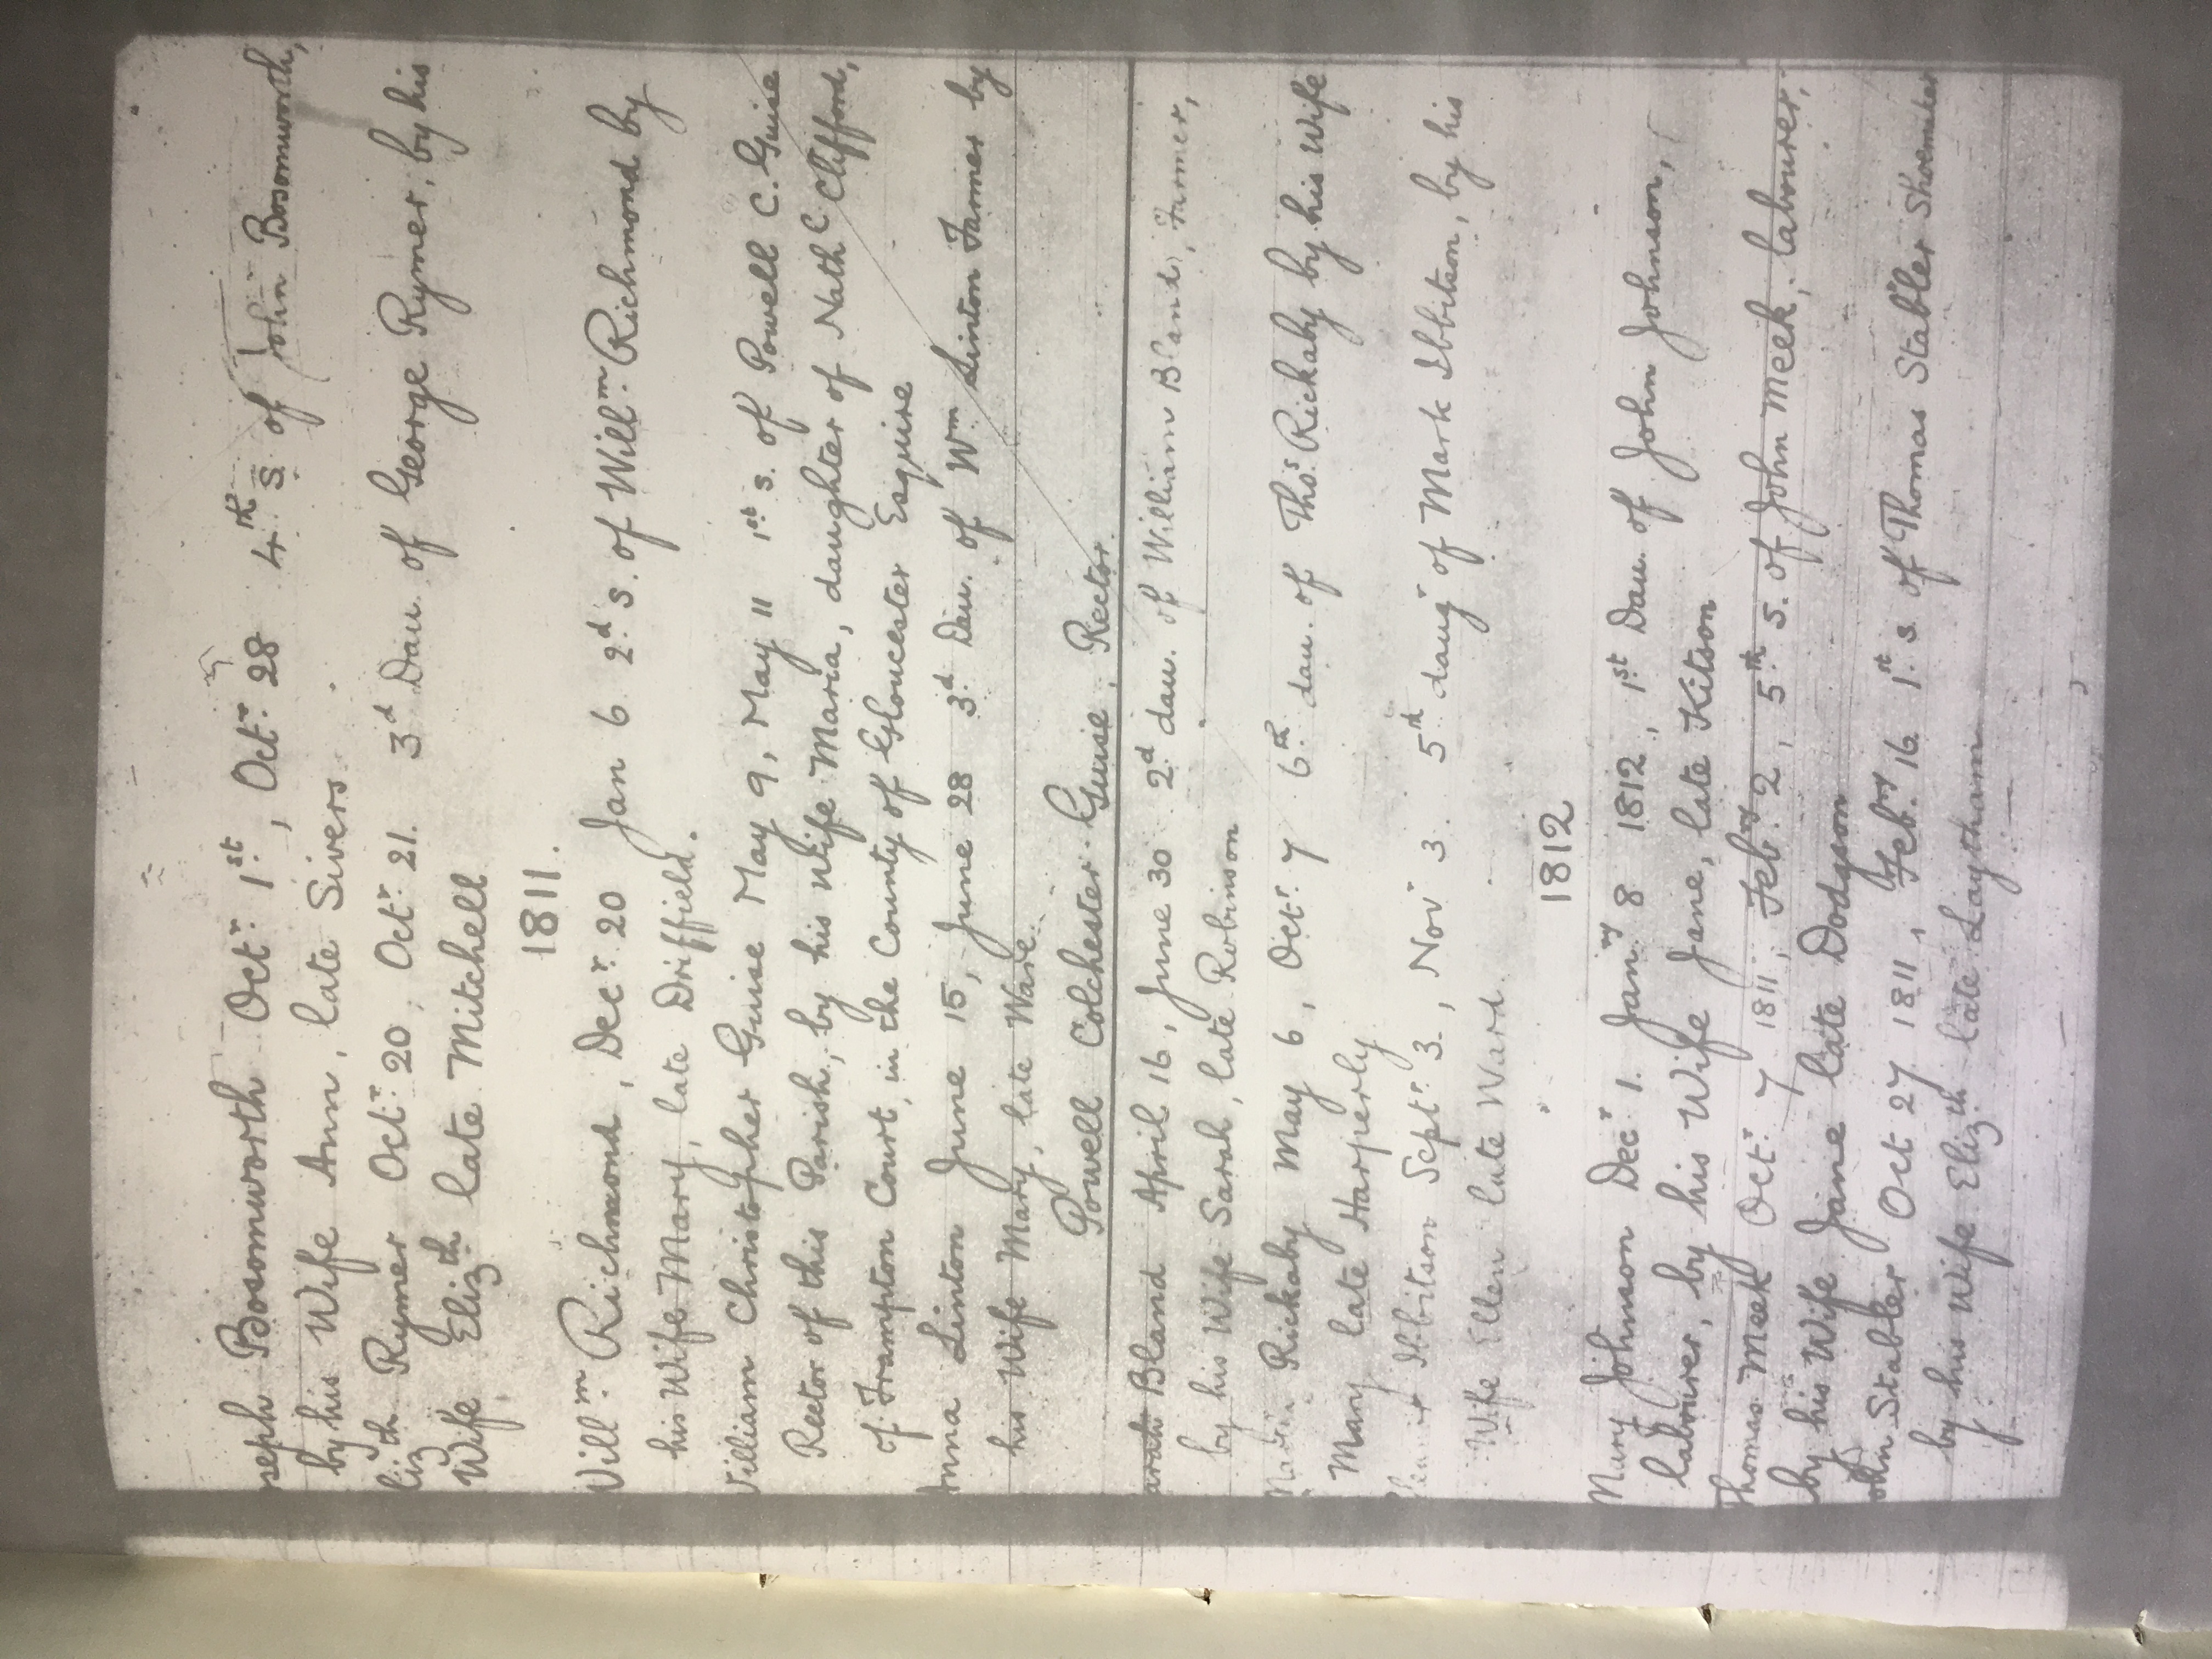 seph Bosomworth Octr. 1st, Octr. 28 4th s. of John Bosomworth,
by his Wife Ann, late Sivers.
lizth Rymer Octr. 20, Octr. 21. 3d Dau. of George Rymer, by his
Wife, Elizth late Mitchell
1811.
Willm. Richmond, Decr. 20 Jan 6 2d. s. of Willm. Richmond by
his Wife Mary, late Driffield.
William Christopher Guise May 9, May 11 1st. s. of Powell C. Guise
Rector of this Parish, by his Wife Maria, daughter of Nath C. Clifford,
of Frampton Court, in the County of Gloucester Esquire
Anna Linton June 15, June 28 3d. Dau. of Wm Linton Farmer by
his Wife Mary, late Ware.
Powell Colchester Guise, Rector.
arah Bland April 16, June 30 2d dau. of William Bland, Farmer,
by his Wife Sarah, late Robinson
Rickaby May 6, Octr. 7 6th. dau. of Thos. Rickaby by his Wife
Mary late Harperly
Ibbitson Septr. 3., Novr 3. 5th daugr of Mark Ibbitson, by his
Wife Ellen late Ward.
1812
Mary Johnson Decr 1. Jany 8 1812, 1st Dau. of John Johnson,
labourer, by his Wife Jane, late Kitson
Thomas Meek Octr. 7 1811, Feby. 2, 5th s. of John Meek, labourer,
by his Wife Jane late Dodgson
John Stabler Oct 27 1811, Feby. 16 1st. s. of Thomas Stabler Shoemaker
by his Wife Elizth late Laytham